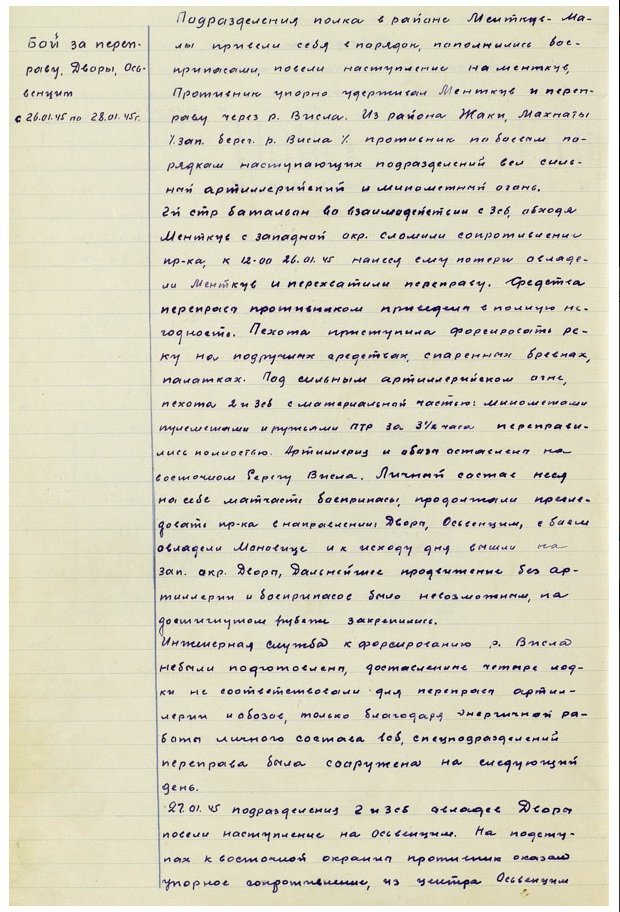 Бой за переп-
раву, Дворы, Ось-
венцим
с 26.01.45 по 28.01.45г.
Подразделения полка в районе Менткув-Ма-
лы привели себя в порядок, пополнились бое-
припасами, повели наступление на Менткув,
Противник упорно удерживал Менткув и переп-
раву через р. Висла. Из района Жаки, Махнаты
/зап. берег. р. Висла/ противник по боевым по-
рядкам наступающих подразделений вел силь-
ный артиллерийский и минометный огонь.
2й стр батальон во взаимодействии с 3сб, обходя
Менткув с западной окр. сломили сопротивление
пр-ка, к 12-00 26.01.45 нанеся ему потери овладе-
ли Менткув и перехватили переправу. Средства
переправ противником приведена в полную не-
годность. Пехота приступила форсировать ре-
ку на подручных средствах, спаренных бревнах,
палатках. Под сильным артиллерийском огне,
пехота 2 и 3сб с материальной частью: минометами
пулеметами и ружьями ПТР за 3½ часа переправи-
лись полностью. Артиллерия и обоза оставлена на
восточном берегу Висла. Личный состав неся
на себе матчасть боеприпасы, продолжали пресле-
довать пр-ка в направлении: Дворы, Осьвенцим, с боем
овладели Моновице и к исходу дня вышли на
зап. окр. Дворы, Дальнейшее продвижение без ар-
тиллерии и боеприпасов было невозможным, на
достигнутом рубеже закрепились.
Инженерная служба к форсированию р. Висла
небыли подготовлена, доставленные четыре лод-
ки не соответствовали для переправ артил-
лерии и обозов, только благодаря энергичной ра-
боты личного состава 1сб, спецподразделений
переправа была сооружена на следующий
день.
27.01.45 подразделения 2 и 3сб овладев Дворы
повели наступление на Осьвенцим. На подсту-
пах к восточной окраины противник оказал
упорное сопротивление, из центра Осьвенцим